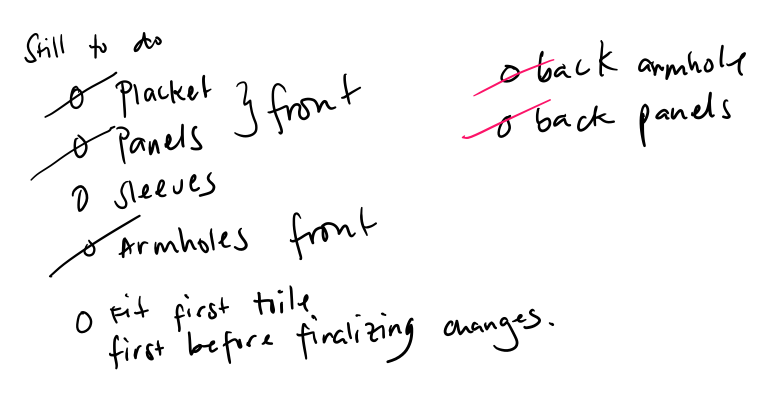 Still to do
o Placket } front
o Panels
o Sleeves
o Armholes front
o Fit first toile
first before finalizing changes.
o back armhole
o back panels